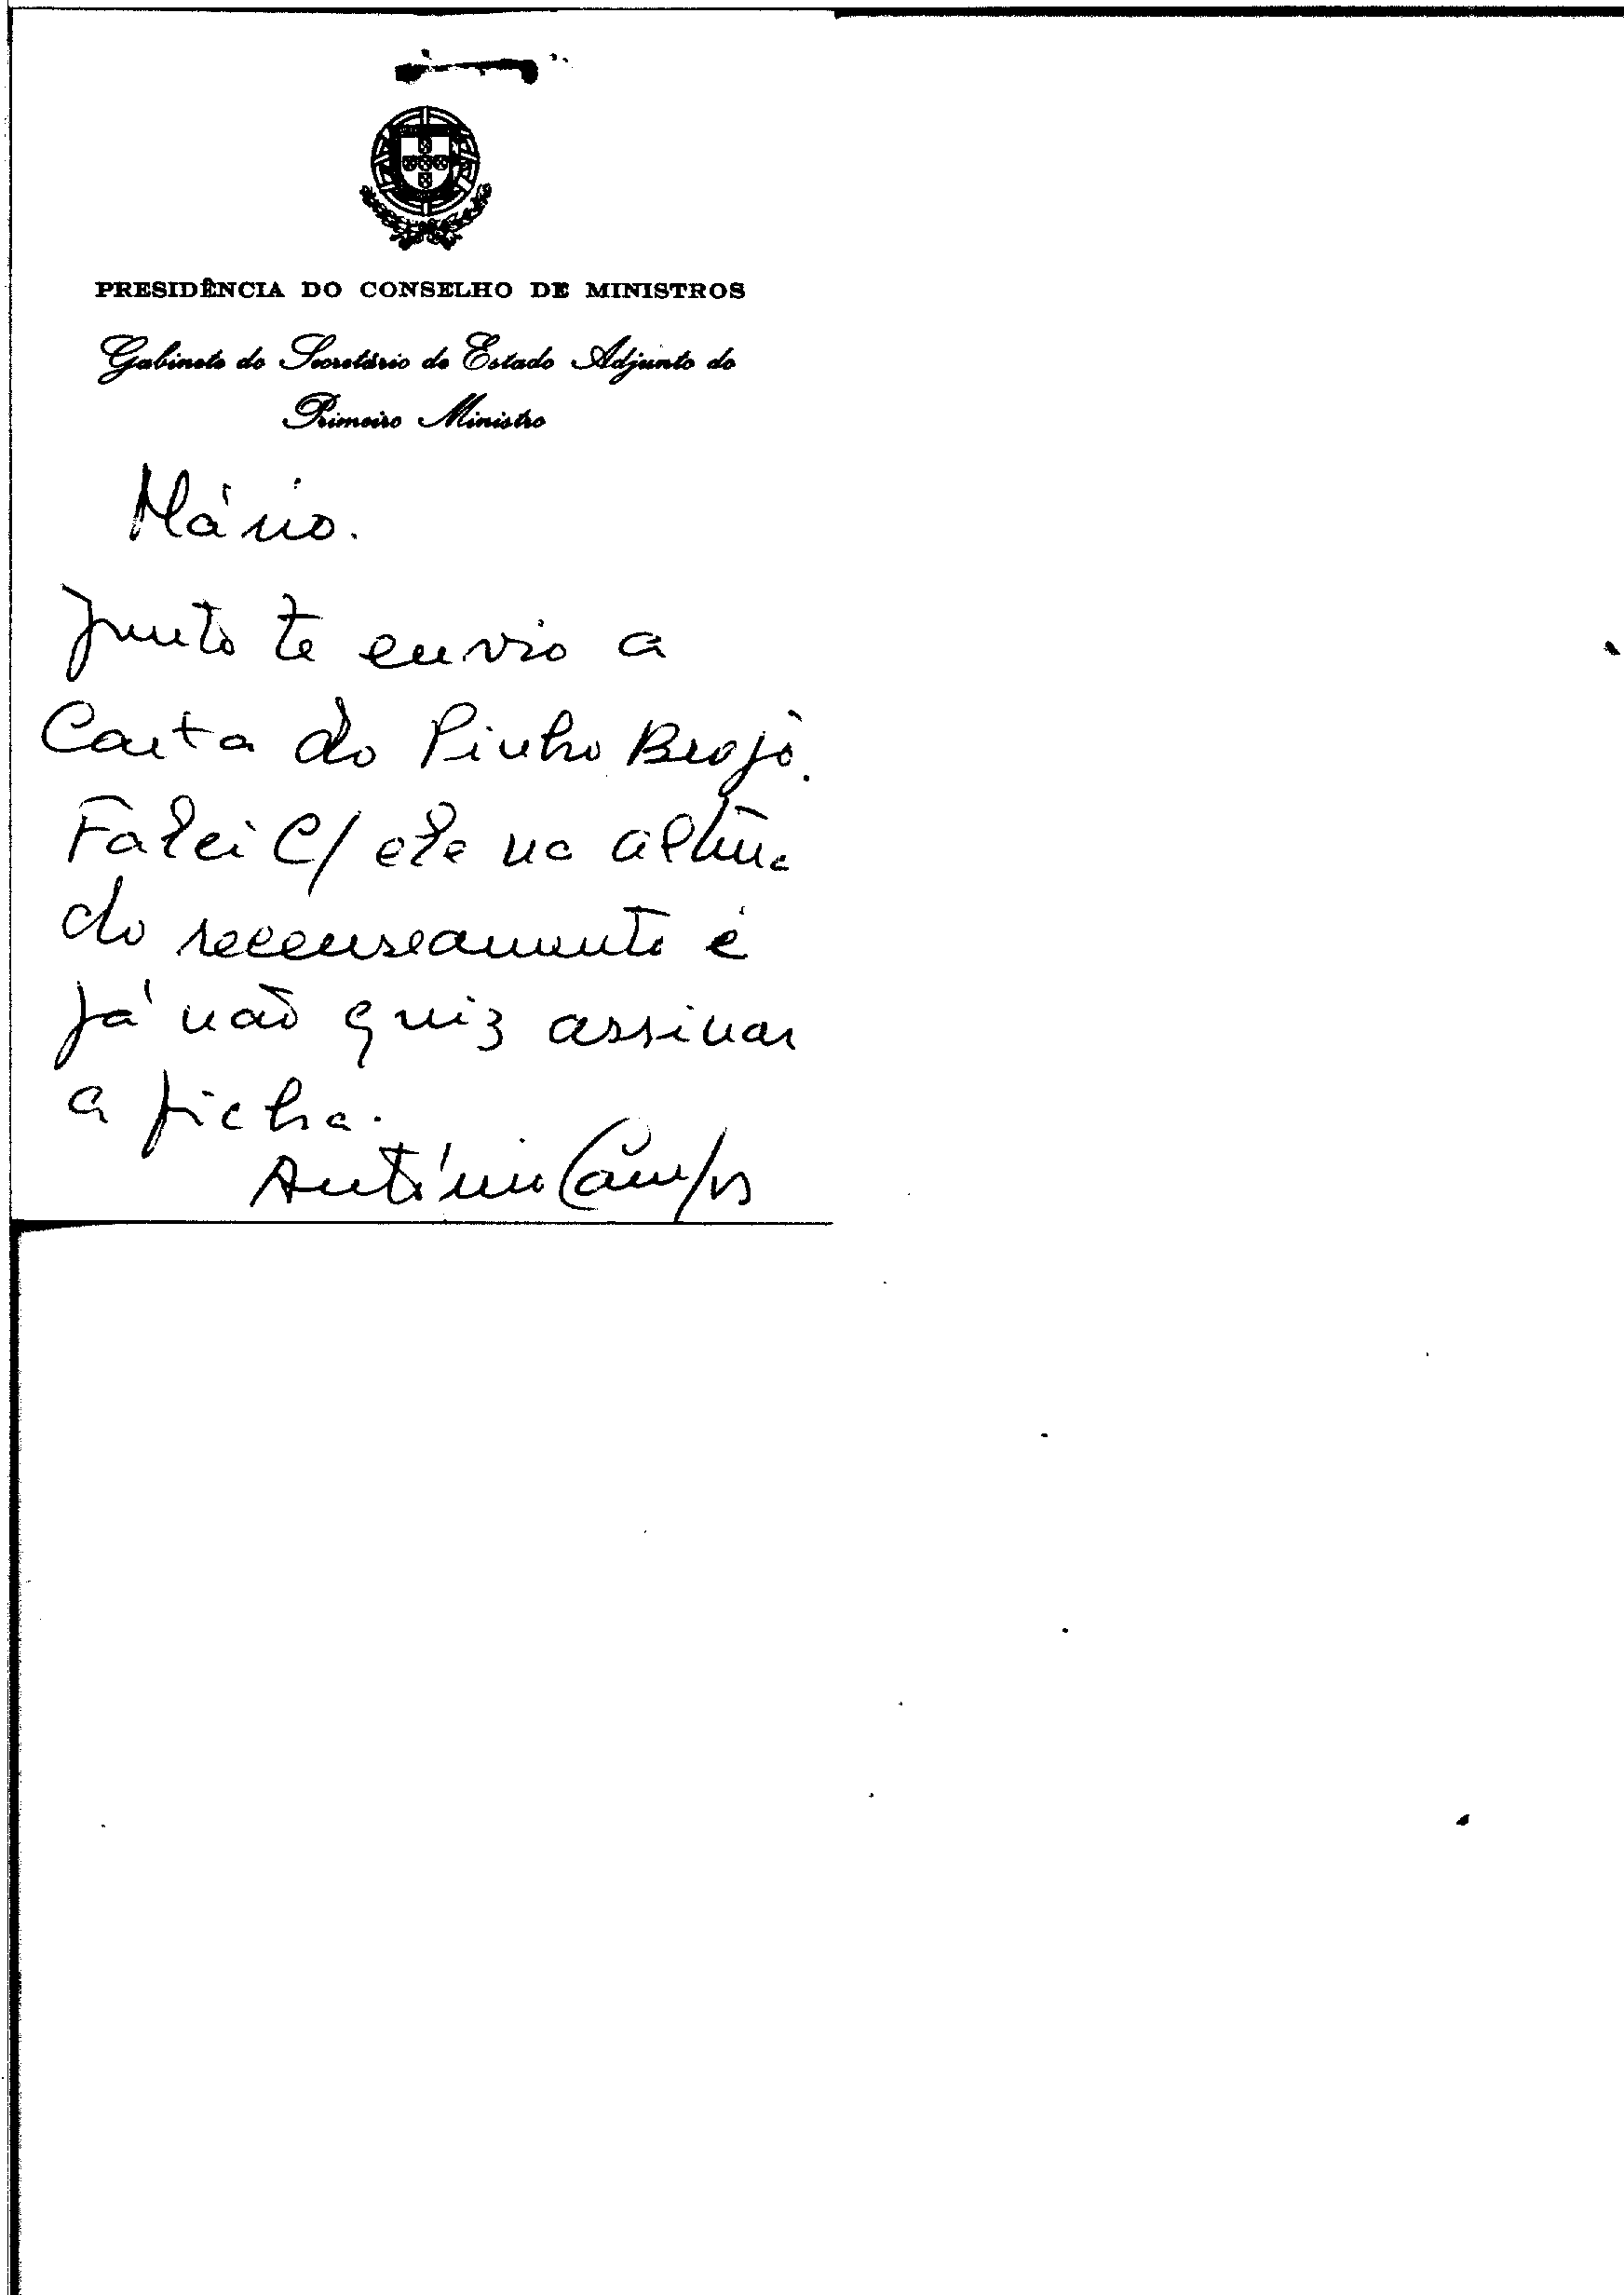 PRESIDÊNCIA DO CONSELHO DE MINISTROS
Gabinete do Secretário de Estado Adjunto do
Primeiro Ministro
Mário.
Junto te envio a
Carta do Pinho Brojo.
Falei C/ ele na altura
do recenseamento e
já não quiz assinar
a ficha.
António Campos